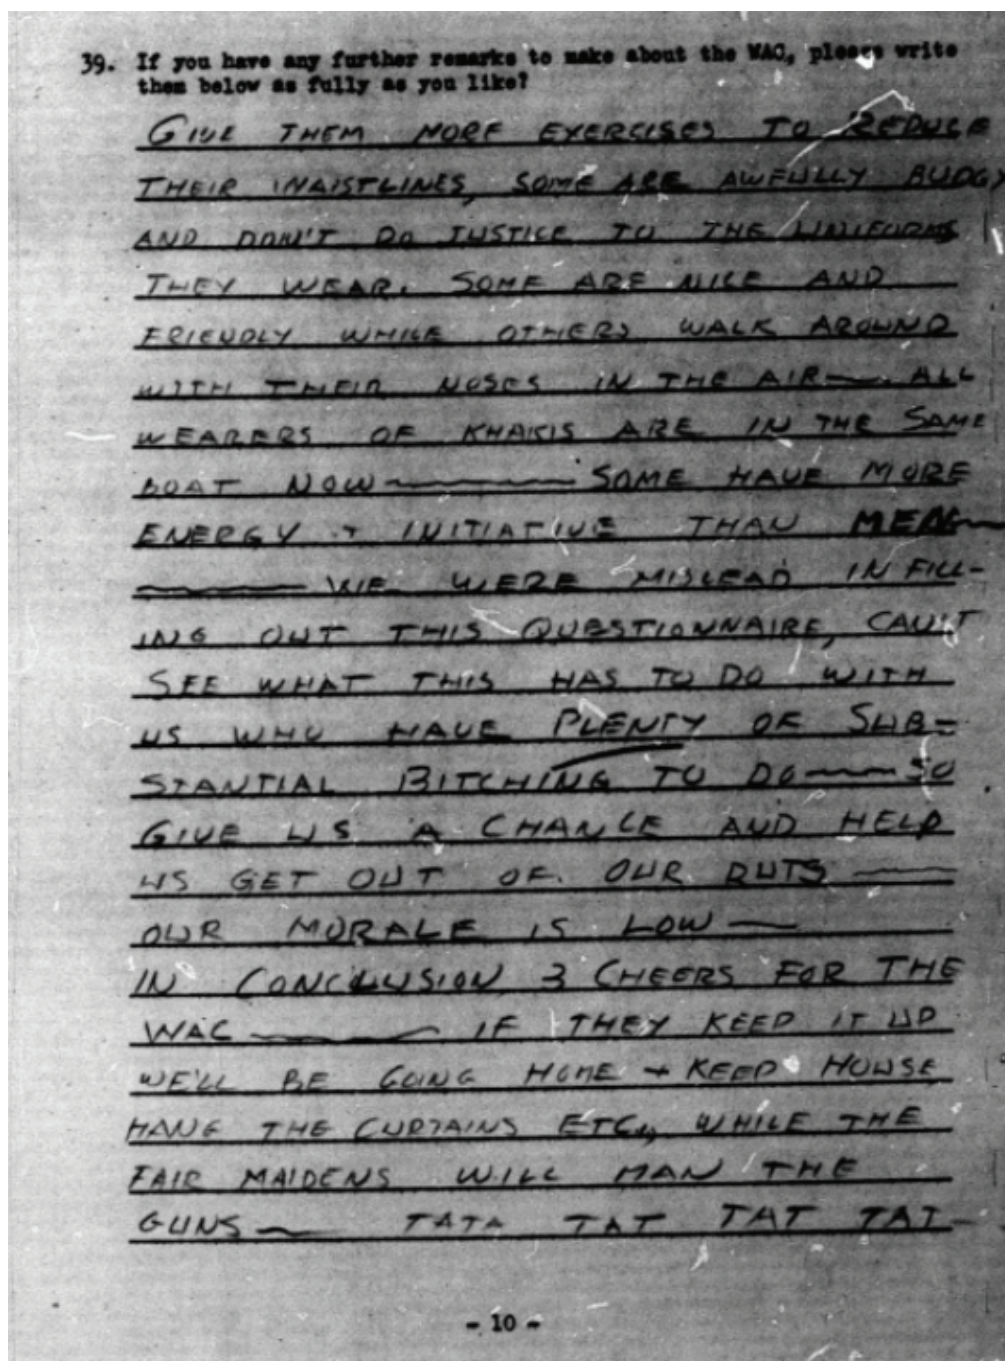 39. If you have any further remarks to make about the WAC, please write
them below as fully as you like?
GIVE THEM MORE EXERCISES TO REDUCE
THEIR WAISTLINES, SOME ARE AWFULLY BUDGY
AND DON'T DO JUSTICE TO THE UNIFORMS
THEY WEAR. SOME ARE NICE AND
FRIENDLY WHILE OTHERS WALK AROUND
WITH THEIR NOSES IN THE AIR —. ALL
WEARERS OF KHAKIS ARE IN THE SAME
BOAT NOW ——— SOME HAVE MORE
ENERGY + INITIATIVE THAN MEN —
——— WE WERE MISLEAD IN FILL-
ING OUT THIS QUESTIONNAIRE, CAN'T
SEE WHAT THIS HAS TO DO WITH
US WHO HAVE PLENTY OF SUB-
STANTIAL BITCHING TO DO —— SO
GIVE US A CHANCE AND HELP
US GET OUT OF. OUR RUTS ——
OUR MORALE IS LOW ——
IN CONCLUSION 3 CHEERS FOR THE
WAC ——— IF THEY KEEP IT UP
WE'LL BE GOING HOME + KEEP HOUSE
HANG THE CURTAINS ETC., WHILE THE
FAIR MAIDENS WILL MAN THE
GUNS — TATA TAT TAT TAT —
- 10 -